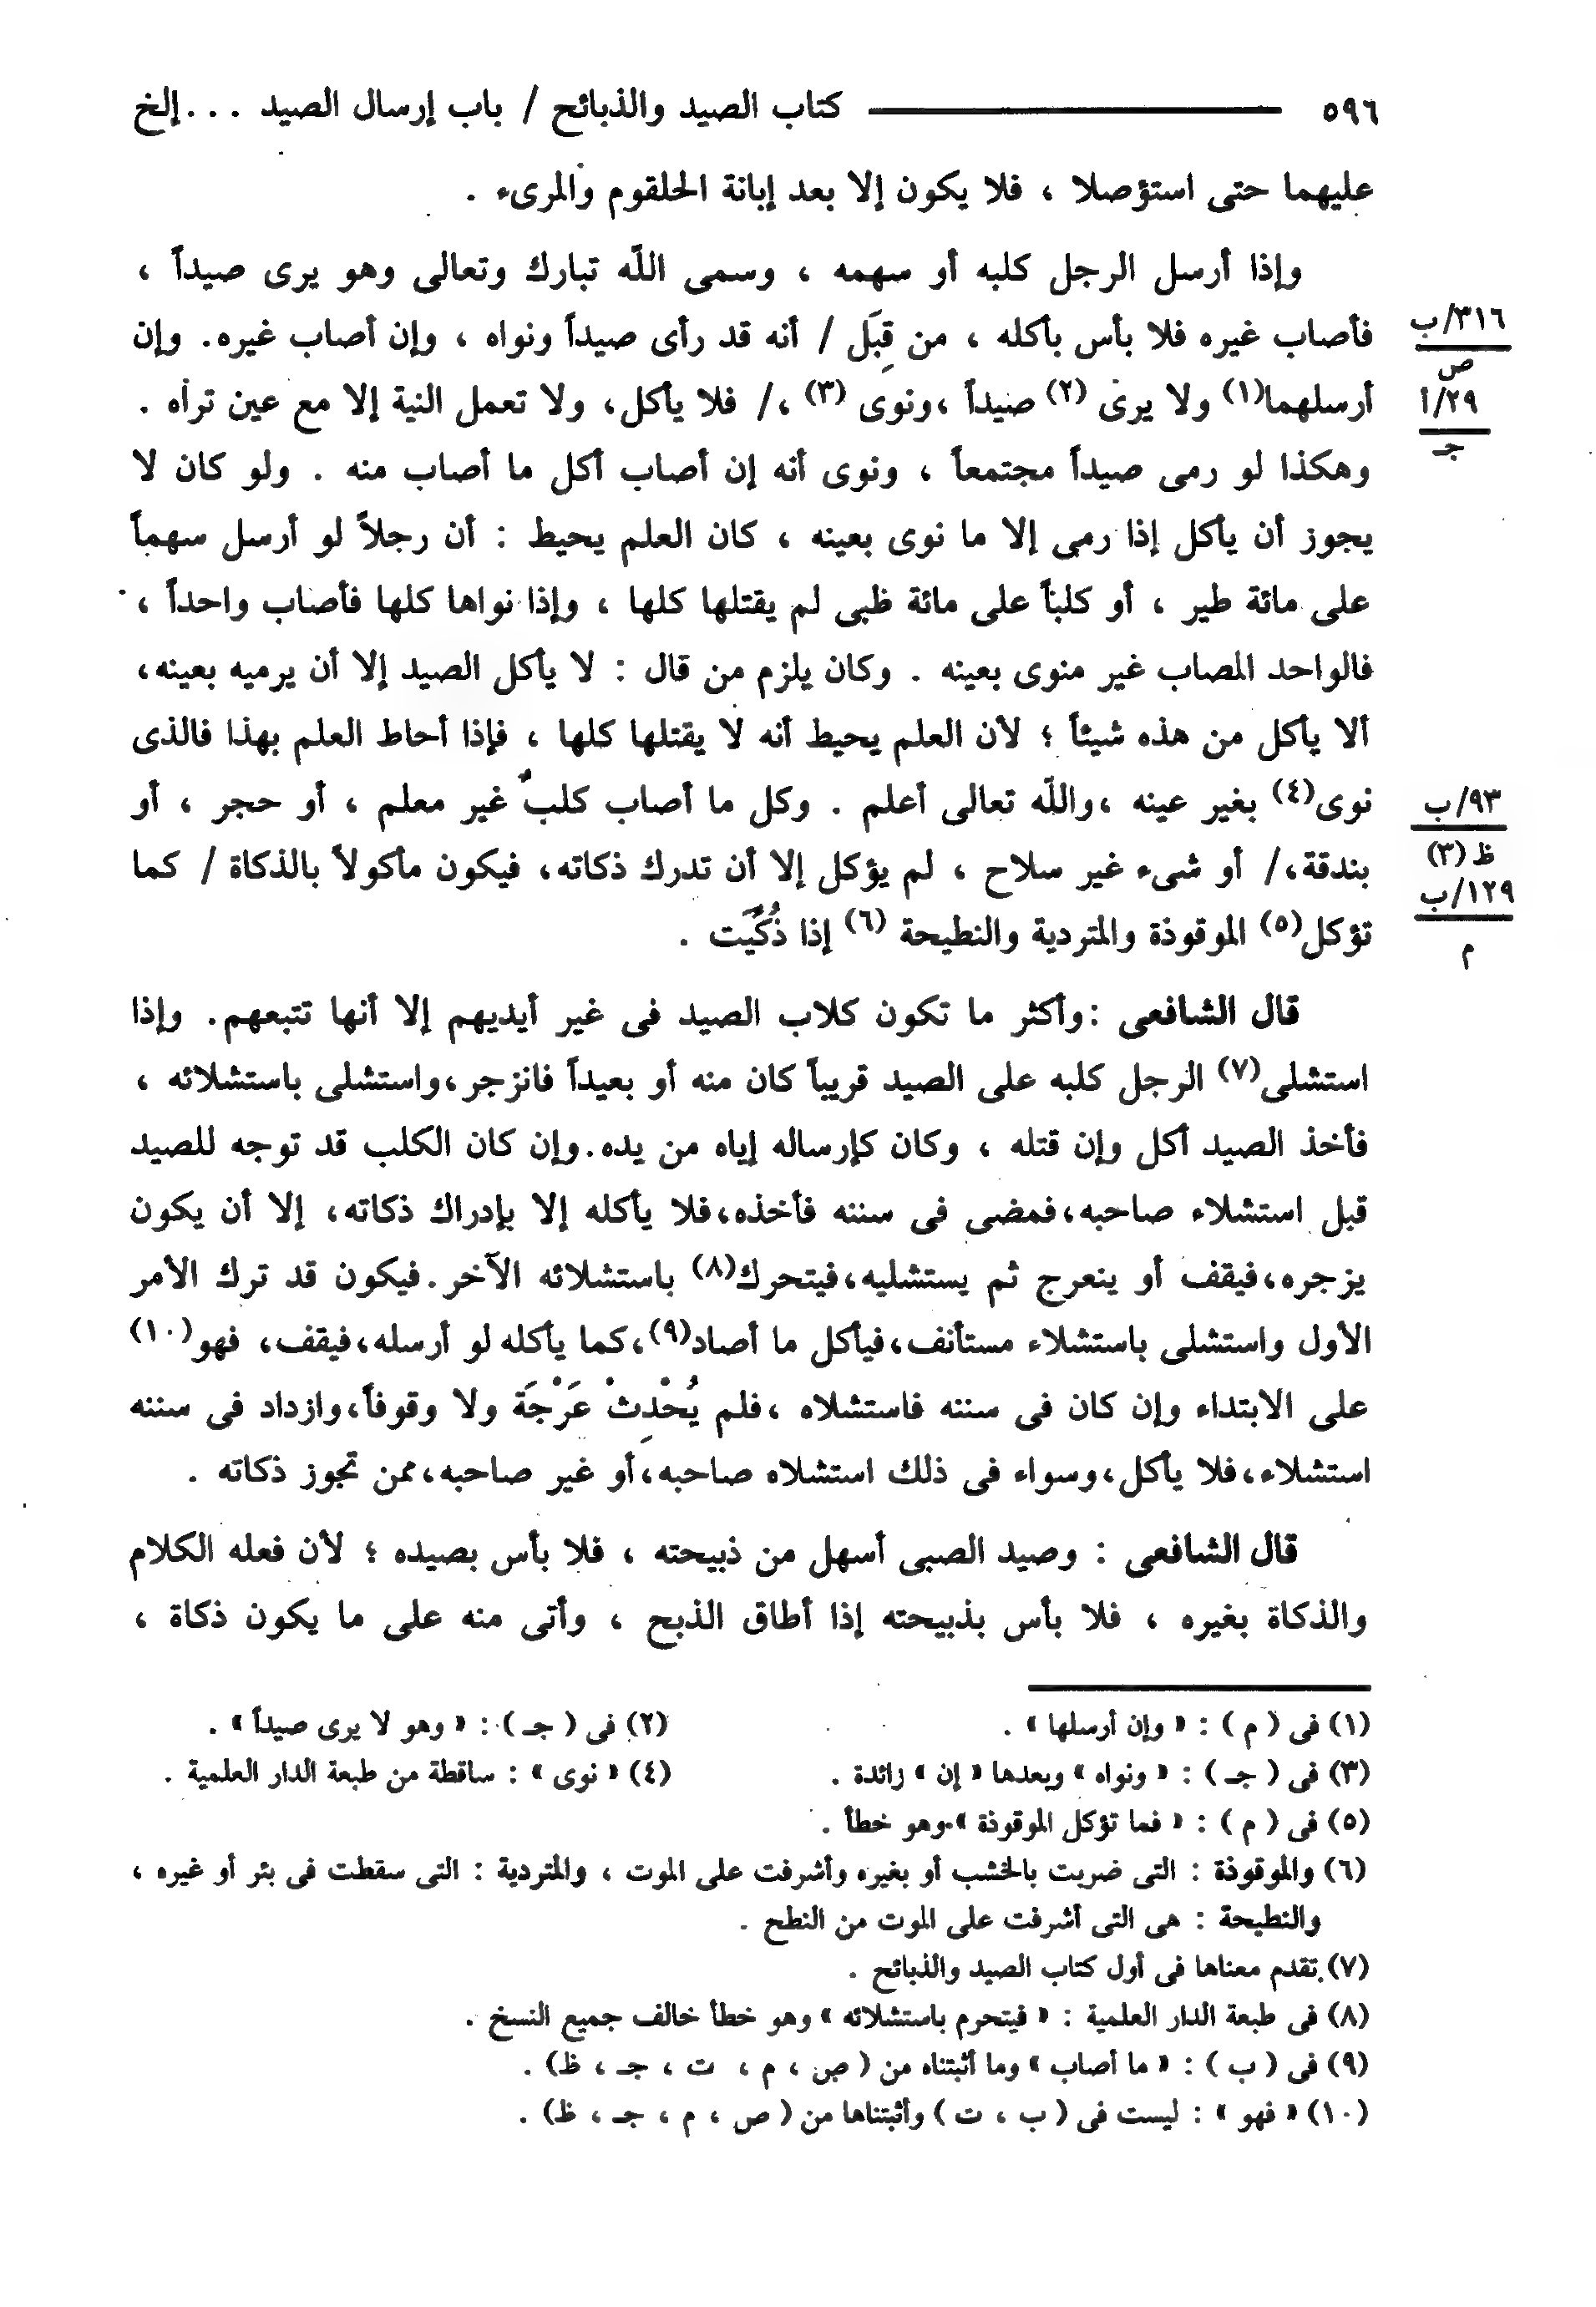 ٥٩٦ ــــــــــــــــ كتاب الصيد والذبائح / باب إرسال الصيد . . . إلخ
عليهما حتى استؤصلا ، فلا يكون إلا بعد إبانة الحلقوم والمرىء .
وإذا أرسل الرجل كلبه أو سهمه ، وسمى اللّه تبارك وتعالى وهو يرى صيداً ،
فأصاب غيره فلا بأس بأكله ، من قِبَل / أنه قد رأى صيداً ونواه ، وإن أصاب غيره. وإن
٣١٦/ب
ص
أرسلهما(١) ولا يرى (٢) صيداً ،ونوى (٣) ،/ فلا يأكل، ولا تعمل النية إلا مع عين تراه .
٢٩/أ
جـ
وهكذا لو رمى صيداً مجتمعاً ، ونوى أنه إن أصاب أكل ما أصاب منه . ولو كان لا
يجوز أن يأكل إذا رمى إلا ما نوى بعينه ، كان العلم يحيط : أن رجلاً لو أرسل سهماً
على مائة طير ، أو كلباً على مائة ظبى لم يقتلها كلها ، وإذا نواها كلها فأصاب واحداً ،
فالواحد المصاب غير منوى بعينه . وكان يلزم من قال : لا يأكل الصيد إلا أن يرميه بعينه،
ألا يأكل من هذه شيئاً ؛ لأن العلم يحيط أنه لا يقتلها كلها ، فإذا أحاط العلم بهذا فالذى
نوى(٤) بغير عينه ،واللّه تعالى أعلم . وكل ما أصاب كلبٌ غير معلم ، أو حجر ، أو
٩٣/ب
ظ (٣)
بندقة،/ أو شىء غير سلاح ، لم يؤكل إلا أن تدرك ذكاته، فيكون مأكولاً بالذكاة / كما
١٢٩/ب
م
تؤكل(٥) الموقوذة والمتردية والنطيحة (٦) إذا ذُكِّيَت .
قال الشافعى :وأكثر ما تكون كلاب الصيد فى غير أيديهم إلا أنها تتبعهم. وإذا
استشلى(٧) الرجل كلبه على الصيد قريباً كان منه أو بعيداً فانزجر،واستشلى باستشلائه ،
فأخذ الصيد أكل وإن قتله ، وكان كإرساله إياه من يده.وإن كان الكلب قد توجه للصيد
قبل استشلاء صاحبه،فمضى فى سننه فأخذه،فلا يأكله إلا بإدراك ذكاته، إلا أن يكون
يزجره،فيقف أو ينعرج ثم يستشليه،فيتحرك(٨) باستشلائه الآخر.فيكون قد ترك الأمر
الأول واستشلى باستشلاء مستأنف،فيأكل ما أصاد(٩)،كما يأكله لو أرسله،فيقف، فهو(١٠)
على الابتداء وإن كان فى سننه فاستشلاه ،فلم يُحْدِثْ عَرْجَة ولا وقوفاً،وازداد فى سننه
استشلاء،فلا يأكل،وسواء فى ذلك استشلاه صاحبه،أو غير صاحبه،ممن تجوز ذكاته .
قال الشافعى : وصيد الصبى أسهل من ذبيحته ، فلا بأس بصيده ؛ لأن فعله الكلام
والذكاة بغيره ، فلا بأس بذبيحته إذا أطاق الذبح ، وأتى منه على ما يكون ذكاة ،
(١) فى ( م ) : « وإن أرسلها » .
(٢) فى ( جـ ) : « وهو لا يرى صيداً » .
(٣) فى ( جـ ) : « ونواه » وبعدها « إن » زائدة .
(٤) « نوى » : ساقطة من طبعة الدار العلمية .
(٥) فى ( م ) : « فما تؤكل الموقوذة » وهو خطأ .
(٦) والموقوذة : التى ضربت بالخشب أو بغيره وأشرفت على الموت ، والمتردية : التى سقطت فى بئر أو غيره ،
والنطيحة : هى التى أشرفت على الموت من النطح .
(٧) تقدم معناها فى أول كتاب الصيد والذبائح .
(٨) فى طبعة الدار العلمية : « فيتحرم باستشلائه » وهو خطأ خالف جميع النسخ .
(٩) فى ( ب ) : « ما أصاب » وما أثبتناه من ( ص ، م ، ت ، جـ ، ظ) .
(١٠) « فهو » : ليست فى ( ب ، ت ) وأثبتناها من ( ص ، م ، جـ ، ظ) .